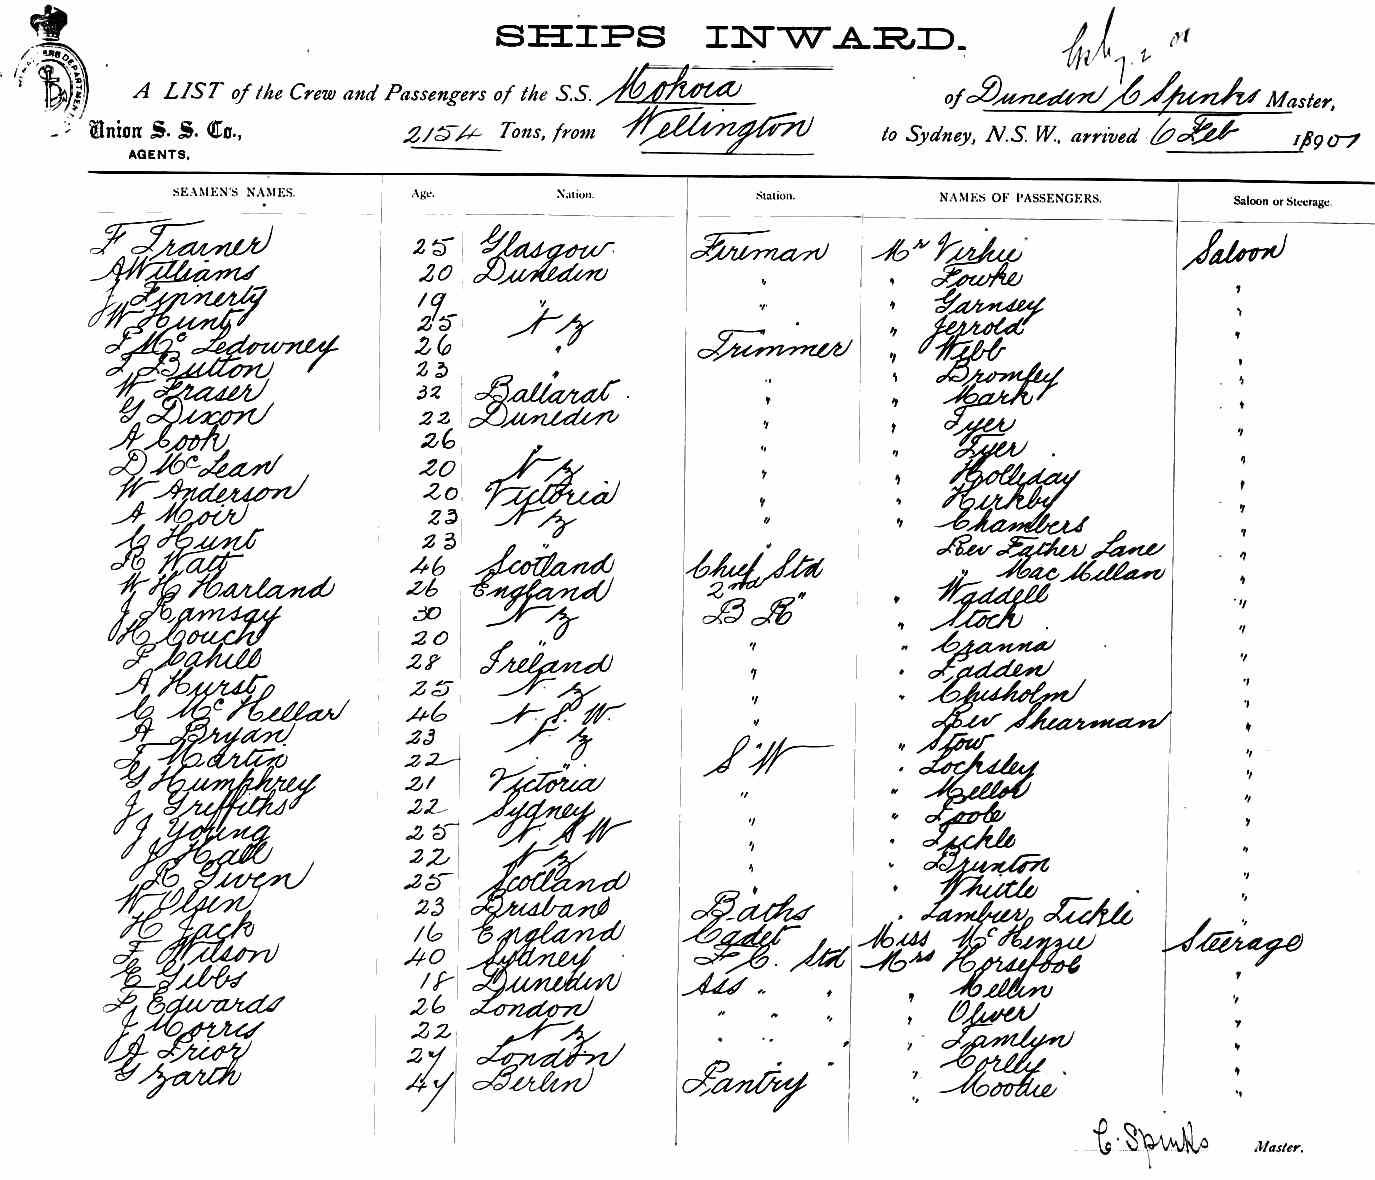 SHIPS INWARD.
A LIST of the Crew and Passengers of the S.S. Mokoia of Dunedin C Spinks Master,
Union S. S. Co., AGENTS, 2154 Tons, from Wellington to Sydney, N.S.W., arrived 6 Feb 1901
SEAMEN'S NAMES. Age. Nation. Station. NAMES OF PASSENGERS. Saloon or Steerage.
F Trainer 25 Glasgow Fireman Mr Virhie Saloon
A Williams 20 Dunedin " " Fowke "
J Finnerty 19 " " " Garnsey "
W Hunt 25 N Z " " Jerrold "
P Mc Ledowney 26 " Trimmer " Webb "
Button 23 " " " Bromley "
W Fraser 32 Ballarat " " Mark "
G Dixon 22 Dunedin " " Tyer "
A Cook 26 " " " Tyer "
D McLean 20 N Z " " Holliday "
W Anderson 20 Victoria " " Kirkby "
A Moir 23 N Z " " Chambers "
C Hunt 23 " " Rev Father Lane "
R Watt 46 Scotland Chief Std " Mac Millan "
W H Harland 26 England 2nd " " Waddell "
J Ramsay 30 N Z B R " Stock "
H Couch 20 " " " Cranna "
P Cahill 28 Ireland " " Fadden "
A Hurst 25 N. Z " " Chisholm "
C McKellar 46 N. S. W. " Rev Shearman "
A Bryan 23 N Z S W " Stow "
F Martin 22 " " " Locksley "
G Humphrey 21 Victoria " " Mellor "
J Griffiths 22 Sydney " " Poole "
J Young 25 N S W " " Tickle "
J Hall 22 N Z " " Brunton "
R Given 25 Scotland " " Whittle "
W Olsen 23 Brisbane Baths " Lambier Tickle "
H Jack 16 England Cadet Miss McKenzie Steerage
F Wilson 40 Sydney F C. Std Mrs Horsepool "
E Gibbs 18 Dunedin Ass " " " Mellin "
P Edwards 26 London " " " " Oliver "
J Morris 22 N Z " " " " Tamlyn "
A Prior 27 London " " " Corlly "
G Zarth 47 Berlin Pantry " Moodie "
C. Spinks Master.